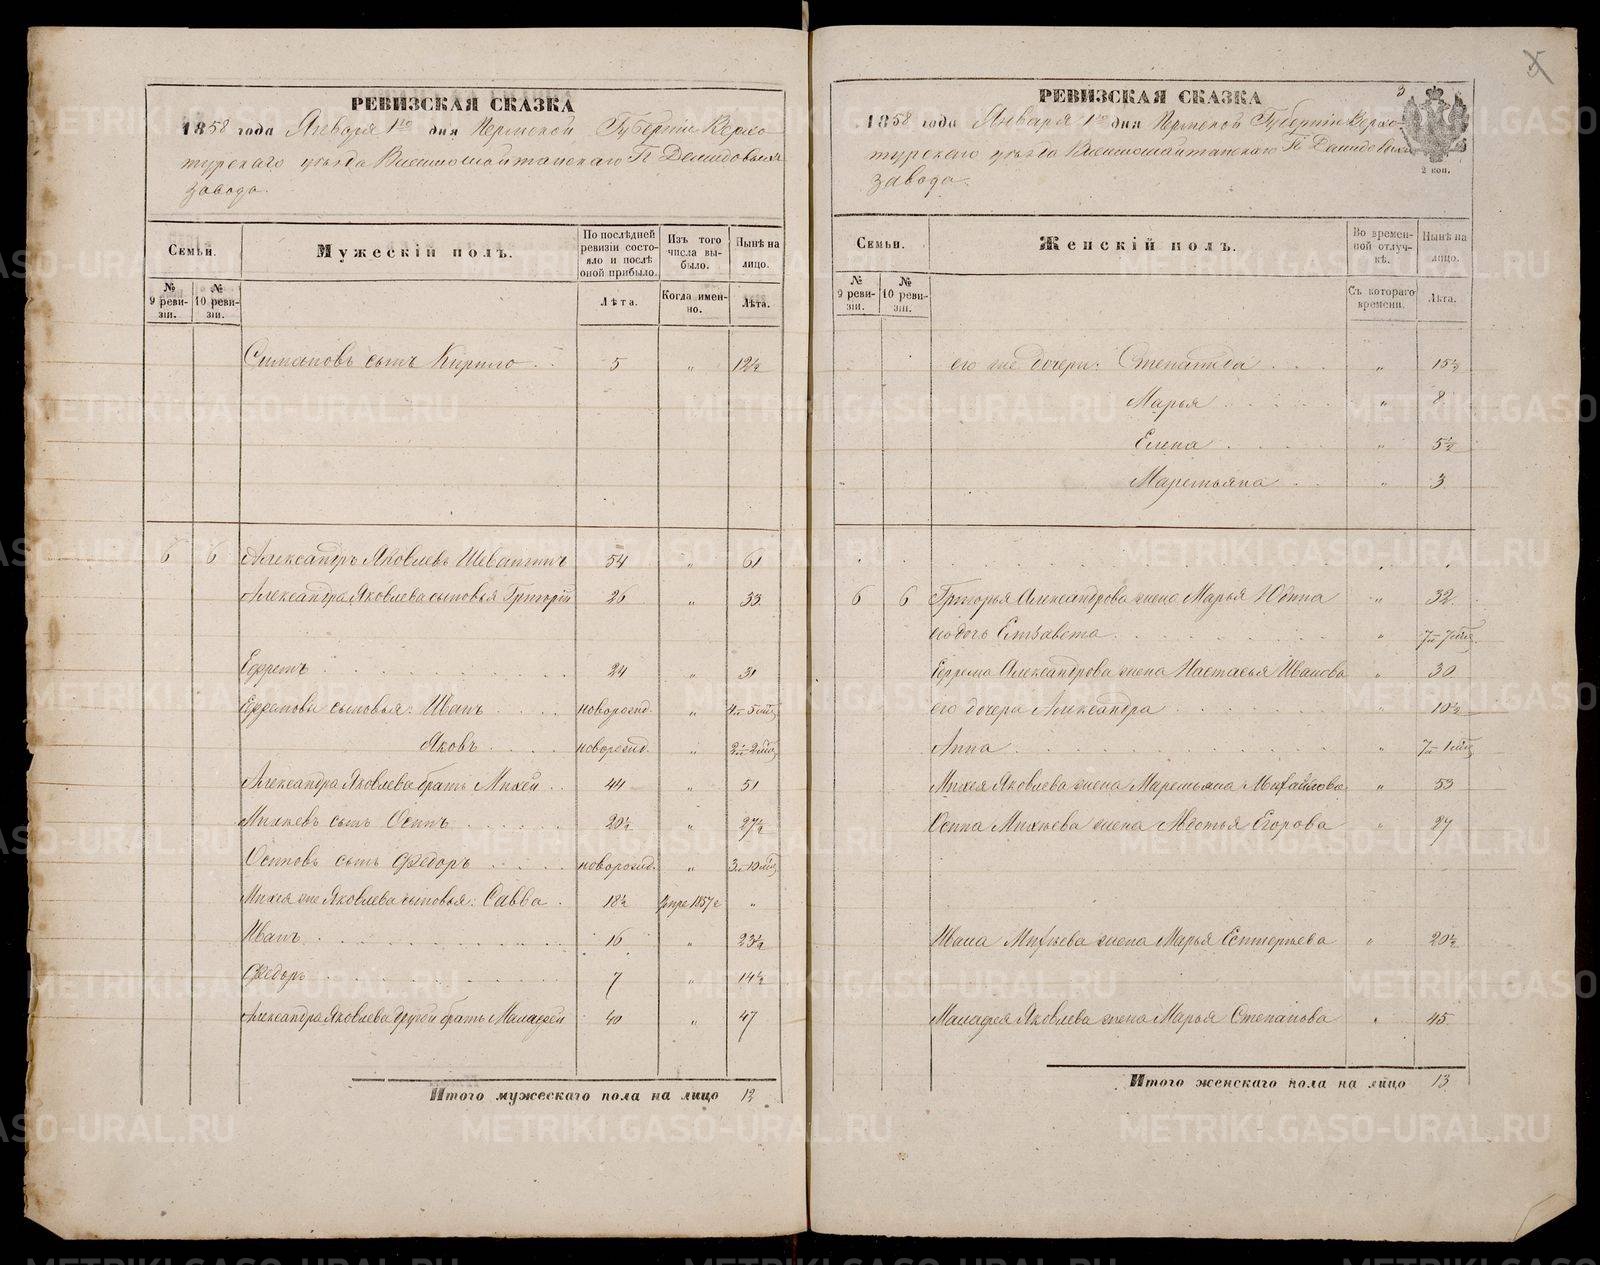 РЕВИЗСКАЯ СКАЗКА
1858 года Января 1го дня Пермской Губерніи Верхо
турскаго уѣзда Висимошайтанскаго Г. Демидовыхъ
завода.
Семьи.
Мужескій полъ.
По послѣдней ревизіи состояло и послѣ оной прибыло.
Изъ того числа выбыло.
Нынѣ на лицо.
№ 9 ревизіи.
№ 10 ревизіи.
Лѣта.
Когда именно.
Лѣта.
Симановъ сынъ Кирило 5 „ 12½
6 6 Александръ Яковлевъ Шевалгинъ 54 „ 61
Александра Яковлева сыновья Григорій 26 „ 33
Ефремъ 24 „ 31
Ефремовы сыновья: Иванъ новорожд. „ 4л. 5мѣц
Яковъ новорожд. „ 2л. 2мѣц
Александра Яковлева братъ Михей 44 „ 51
Михѣевъ сынъ Осипъ 20½ „ 27½
Осиповъ сынъ Федоръ новорожд. „ 3л. 10мѣц
Михея же Яковлева сыновья: Савва 18½ 1857г „
Иванъ 16 „ 23½
Федоръ 7 „ 14½
Александра Яковлева другой братъ Малафей 40 „ 47
Итого мужескаго пола на лицо 12
5
3
РЕВИЗСКАЯ СКАЗКА
1858 года Января 1го дня Пермской Губерніи Верхо
турскаго уѣзда Висимошайтанскаго Г. Демидовыхъ
завода.
2 коп.
Семьи.
Женскій полъ.
Во временной отлучкѣ.
Нынѣ на лицо.
№ 9 ревизіи.
№ 10 ревизіи.
Съ котораго времени.
Лѣта.
его же дочери: Степанида „ 15½
Марья „ 8
Елена „ 5½
Маремьяна „ 3
6 6 Григорья Александрова жена Марья Юдина „ 32
его дочь Елизавета „ 7л. 7мѣц
Ефрема Александрова жена Настасья Иванова „ 30
его дочери Александра „ 10½
Анна „ 7л. 1мѣц
Михея Яковлева жена Маремьяна Михайлова „ 53
Осипа Михѣева жена Авдотья Егорова „ 27
Ивана Михѣева жена Марья Евстегнѣева „ 20½
Малафея Яковлева жена Марья Степанова „ 45
Итого женскаго пола на лицо 13
METRIKI.GASO-URAL.RU